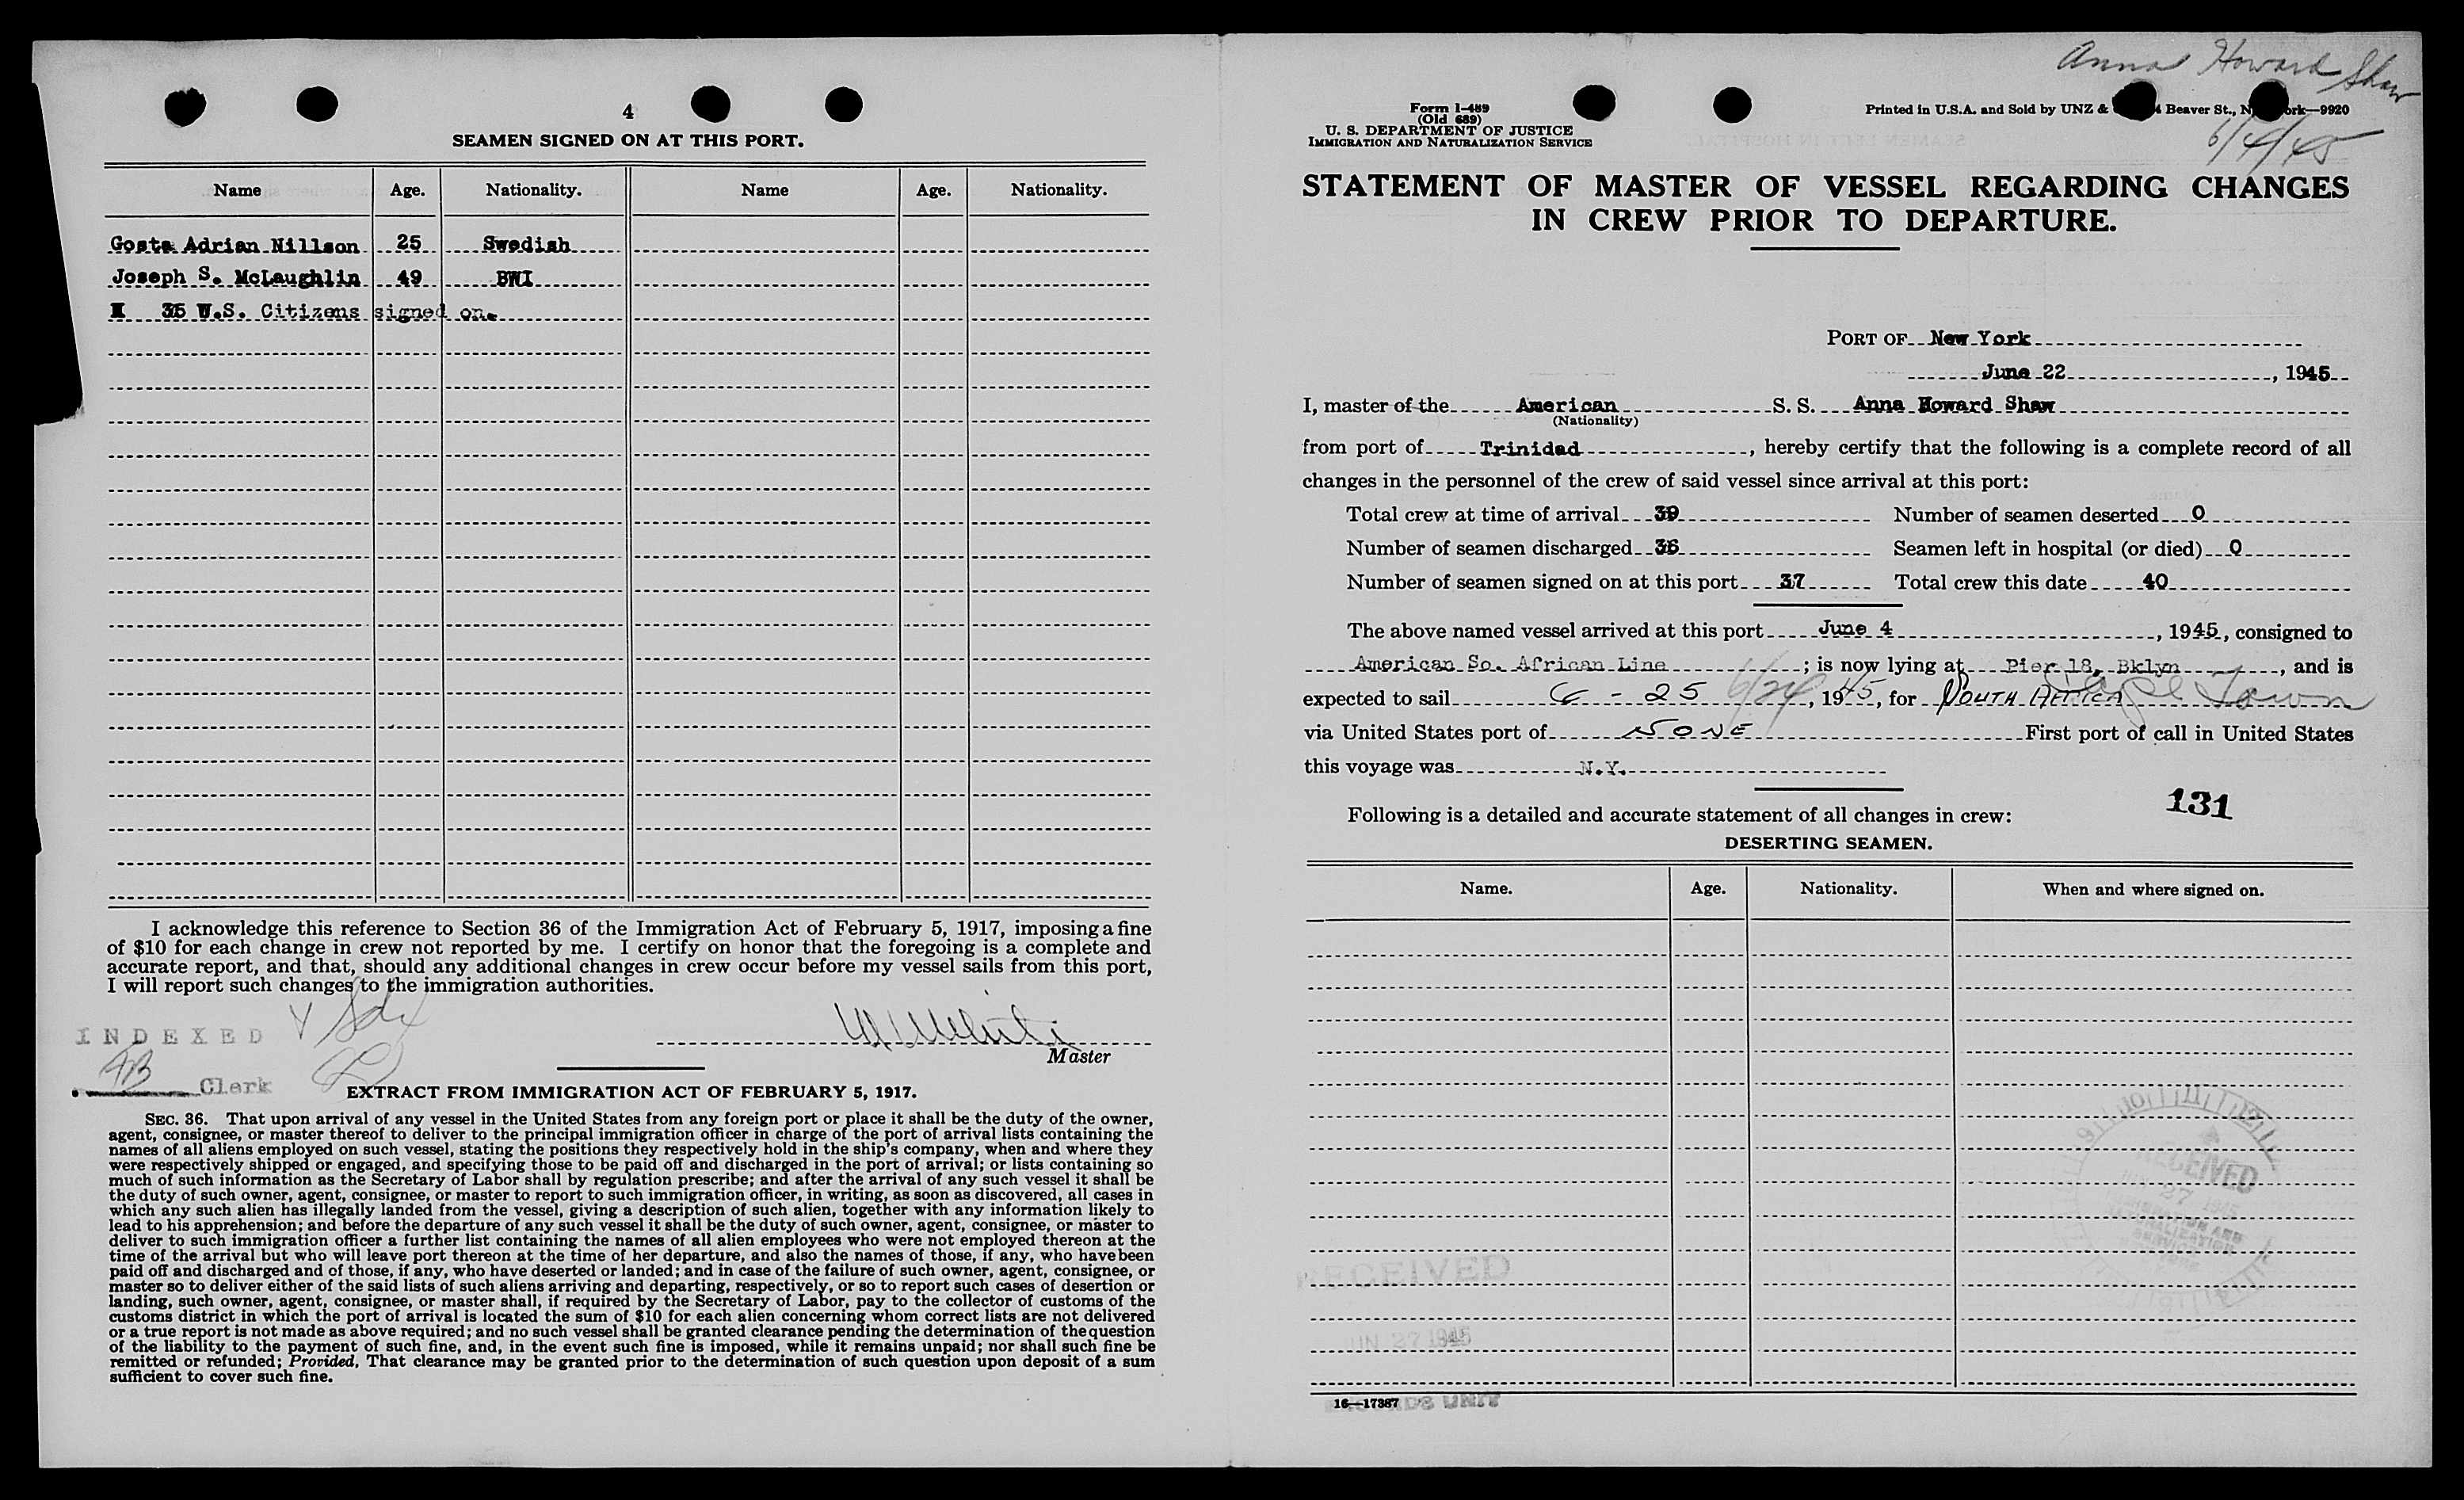 4
SEAMEN SIGNED ON AT THIS PORT.
Name Age. Nationality. Name Age. Nationality.
Gosta Adrian Nillson 25 Swedish
Joseph S. McLaughlin 49 BWI
35 U.S. Citizens signed on.
I acknowledge this reference to Section 36 of the Immigration Act of February 5, 1917, imposing a fine
of $10 for each change in crew not reported by me. I certify on honor that the foregoing is a complete and
accurate report, and that, should any additional changes in crew occur before my vessel sails from this port,
I will report such changes to the immigration authorities.
INDEXED
Master
AB Clerk
EXTRACT FROM IMMIGRATION ACT OF FEBRUARY 5, 1917.
SEC. 36. That upon arrival of any vessel in the United States from any foreign port or place it shall be the duty of the owner,
agent, consignee, or master thereof to deliver to the principal immigration officer in charge of the port of arrival lists containing the
names of all aliens employed on such vessel, stating the positions they respectively hold in the ship's company, when and where they
were respectively shipped or engaged, and specifying those to be paid off and discharged in the port of arrival; or lists containing so
much of such information as the Secretary of Labor shall by regulation prescribe; and after the arrival of any such vessel it shall be
the duty of such owner, agent, consignee, or master to report to such immigration officer, in writing, as soon as discovered, all cases in
which any such alien has illegally landed from the vessel, giving a description of such alien, together with any information likely to
lead to his apprehension; and before the departure of any such vessel it shall be the duty of such owner, agent, consignee, or master to
deliver to such immigration officer a further list containing the names of all alien employees who were not employed thereon at the
time of the arrival but who will leave port thereon at the time of her departure, and also the names of those, if any, who have been
paid off and discharged and of those, if any, who have deserted or landed; and in case of the failure of such owner, agent, consignee, or
master so to deliver either of the said lists of such aliens arriving and departing, respectively, or so to report such cases of desertion or
landing, such owner, agent, consignee, or master shall, if required by the Secretary of Labor, pay to the collector of customs of the
customs district in which the port of arrival is located the sum of $10 for each alien concerning whom correct lists are not delivered
or a true report is not made as above required; and no such vessel shall be granted clearance pending the determination of the question
of the liability to the payment of such fine, and, in the event such fine is imposed, while it remains unpaid; nor shall such fine be
remitted or refunded; Provided, That clearance may be granted prior to the determination of such question upon deposit of a sum
sufficient to cover such fine.
Anna Howard Shaw
6/4/45
Form I-489
(Old 689)
U. S. DEPARTMENT OF JUSTICE
IMMIGRATION AND NATURALIZATION SERVICE
Printed in U.S.A. and Sold by UNZ & Beaver St., N ork—9920
STATEMENT OF MASTER OF VESSEL REGARDING CHANGES
IN CREW PRIOR TO DEPARTURE.
PORT OF New York
June 22, 1945
I, master of the American S. S. Anna Howard Shaw
(Nationality)
from port of Trinidad, hereby certify that the following is a complete record of all
changes in the personnel of the crew of said vessel since arrival at this port:
Total crew at time of arrival 39 Number of seamen deserted 0
Number of seamen discharged 36 Seamen left in hospital (or died) 0
Number of seamen signed on at this port 37 Total crew this date 40
The above named vessel arrived at this port June 4, 1945, consigned to
American So. African Line; is now lying at Pier 18, Bklyn, and is
expected to sail 6 - 25 6/24, 1945, for SOUTH AFRICA Cape Town
via United States port of NONE First port of call in United States
this voyage was N.Y.
131
Following is a detailed and accurate statement of all changes in crew:
DESERTING SEAMEN.
Name. Age. Nationality. When and where signed on.
RECEIVED
JUN 27 1945
IMMIGRATION AND
NATURALIZATION
SERVICE
RECEIVED
JUN 27 1945
RECORDS UNIT
16—17387